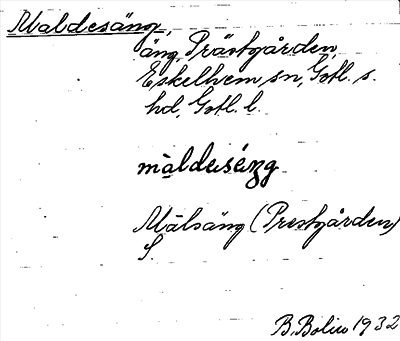 Maldesäng,
äng, Prästgården,
Eskelhem sn, Gotl. s.
hd, Gotl. l.
Målsäng (Prestgården)
S.
B. Bolin 1932